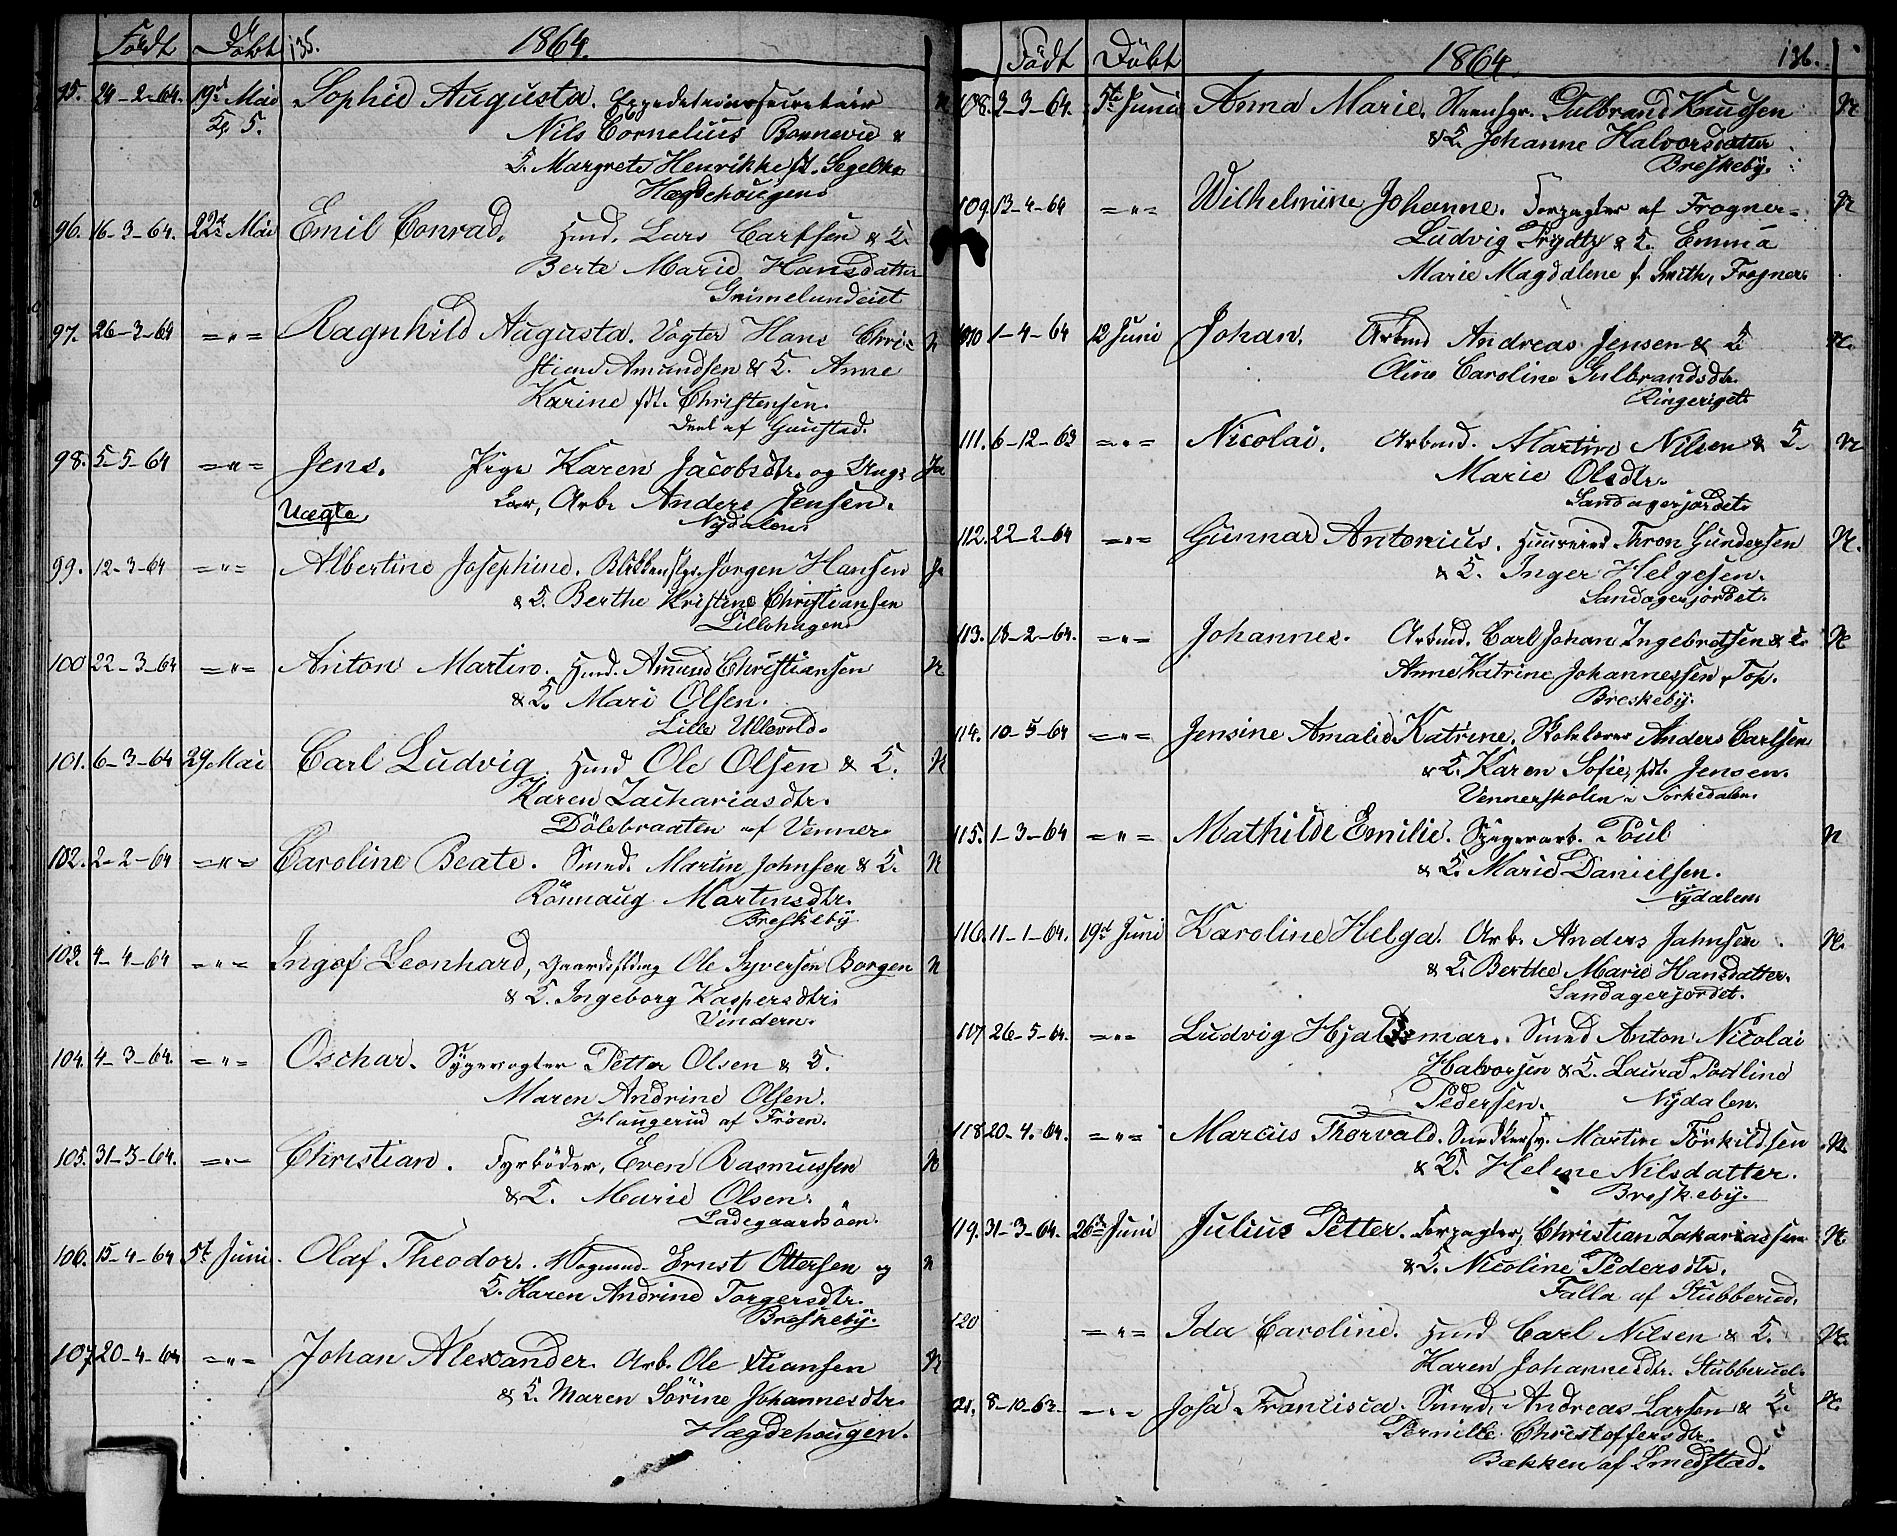 Födt Döbt 135. 1864.
95. 24-2-64. 19d Mai Sophie Augusta. Expeditionssecretair N
Kp 5. Nils Cornelius Bonnevie &
K. Margrete Henrikke fdt. Segelke
Hægdehougen
96. 16-3-64. 22d Mai Emil Conrad. Hmd. Lars Carlsen & K.
Berte Marie Hansdatter
Grimelundeiet
97. 26-3-64 -"- Ragnhild Augusta. Vogter Hans Chri- N
stian Amundsen & K. Anne
Karine fdt. Christensen.
Deel af Goustad.
98. 5-5-64 -"- Jens. Pige Karen Jacobsdtr. og Ung- Ja
Uægte kar, Arb. Anders Jensen.
Nydalen.
99. 12-3-64 -"- Albertine Josephine. Blikkenslgr. Jørgen Hansen Ja
& K. Berthe Kristine Christiansen
Lillohagen
100 22-3-64 -"- Anton Martin. Hmd. Amund Christiansen N
& K. Mari Olsen.
Lille Ullevold.
101. 6-3-64 29 Mai Carl Ludvig. Hmd Ole Olsen & K. N
Karen Zachariasdtr.
Dölebraaten af Venner
102. 2-2-64 -"- Caroline Beate. Smed. Martin Johnsen & K. N
Rönnaug Martinsdtr.
Breskeby
103. 4-4-64 -"- Ingof Leonhard, Ole Syversen Borgen N
& K. Ingeborg Kaspersdtr.
Vindern.
104. 4-3-64 -"- Oschar. Sygevogter Petter Olsen & K.
Maren Andrine Olsen.
Haugerud af Fröen.
105. 31-3-64. -"- Christian. Fyrböder, Even Rasmussen N
& K. Marie Olsen.
Ladegaardsöen.
106. 15-4-64 5t Juni Olaf Theodor. Vognmd. Ernst Ottersen og N
K. Karen Andrine Torgersdtr.
Breskeby.
107 20-4-64 -"- Johan Alexander. Arb. Ole Stiansen N
& K. Maren Sörine Johannesdtr.
Hægdehougen.
Födt Döbt 1864. 136.
108. 3-3-64. 5te Juni Anna Marie. Steenhgr. Gulbrand Knudsen N
& K. Johanne Halvorsdatter
Breskeby.
109. 13-4-64 -"- Wilhelmine Johanne. Forpagter af Frogner- N
Ludvig Frydtz & K. Emma
Marie Magdalene f. Smith, Frogner.
110 1-4-64 12 Juni Johan. Arbmd Andreas Jensen & K N.
Oline Caroline Gulbrandsdtr.
Ringeriget
111. 6-12-63 -"- Nicolai. Arbmd. Martin Nilsen & K N
Marie Olsdtr.
Sandagerjordet
112. 22-2-64 -"- Gunnar Antonius. Huusmd Thron Gundersen N.
& K. Inger Helgesen.
Sandagerjordet.
113. 18-2-64. -"- Johannes. Arbmd. Carl Johan Ingebretsen & K. N
Anne Katrine Johannessen Top.
Breskeby.
114. 10-5-64 -"- Jensine Amalie Katrine. Skolelærer Anders Carlsen
& K. Karen Sofie, fdt. Jensen.
Vennerskolen i Sorkedalen.
115. 1-3-64 -"- Mathilde Emilie. Spigerarb. Poul N
& K. Marie Danielsen.
Nydalen.
116. 11-1-64. 19d Juni Karoline Helga. Arb. Anders Jahnsen N.
& K. Berthe Marie Hansdatter.
Sandagerjordet.
117 26-5-64. -"- Ludvig Hjalmar. Smed Anton Nicolai
Halvorsen & K. Laura Pouline
Pedersen. Nydalen.
118 20-4-64. -"- Marcus Thorvald. Snedkersv. Martin Törkildsen N.
& K. Helene Nilsdatter.
Breskeby.
119. 31-3-64. 26de Juni Julius Petter. Forpagter, Christian Zakariassen N.
& K. Nicoline Pedersdtr.
Falla af Stubberud.
120 -"- Ida Caroline. Hmd Carl Nilsen & K. N.
Karen Johannesdtr. Stubberud.
121. 8-10-63. -"- Josa Francisca. Smed, Andreas Larsen & K. N.
Pernille Christoffersdtr.
Bækken af Smedstad.